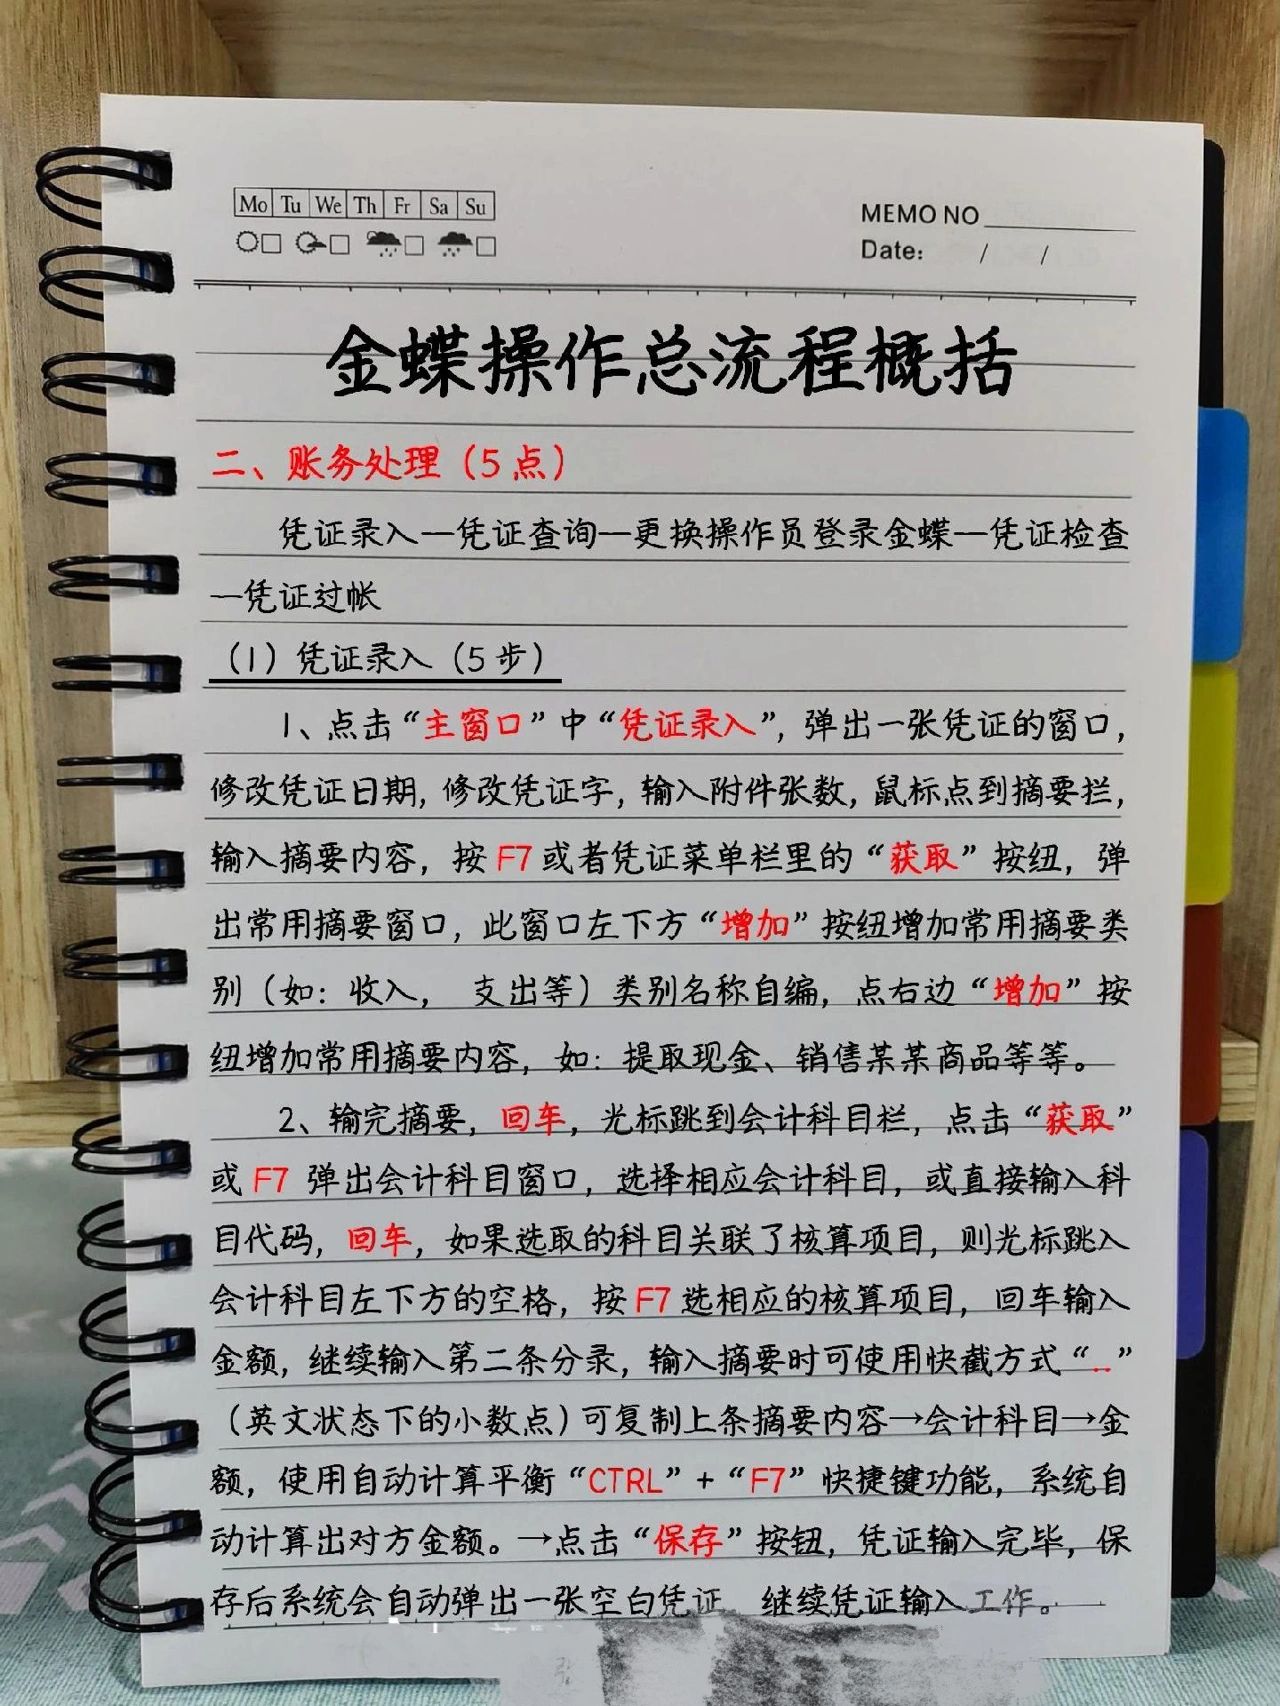 Mo Tu We Th Fr Sa Su
MEMO NO
Date: / /
金蝶操作总流程概括
二、账务处理（5点）
凭证录入—凭证查询—更换操作员登录金蝶—凭证检查
—凭证过帐
（1）凭证录入（5步）
1、点击“主窗口”中“凭证录入”，弹出一张凭证的窗口，
修改凭证日期，修改凭证字，输入附件张数，鼠标点到摘要拦，
输入摘要内容，按F7或者凭证菜单栏里的“获取”按纽，弹
出常用摘要窗口，此窗口左下方“增加”按纽增加常用摘要类
别（如：收入， 支出等）类别名称自编，点右边“增加”按
纽增加常用摘要内容，如：提取现金、销售某某商品等等。
2、输完摘要，回车，光标跳到会计科目栏，点击“获取”
或F7 弹出会计科目窗口，选择相应会计科目，或直接输入科
目代码，回车，如果选取的科目关联了核算项目，则光标跳入
会计科目左下方的空格，按F7选相应的核算项目，回车输入
金额，继续输入第二条分录，输入摘要时可使用快截方式“..”
（英文状态下的小数点）可复制上条摘要内容→会计科目→金
额，使用自动计算平衡“CTRL”+“F7”快捷键功能，系统自
动计算出对方金额。→点击“保存”按钮，凭证输入完毕，保
存后系统会自动弹出一张空白凭证 继续凭证输入工作。